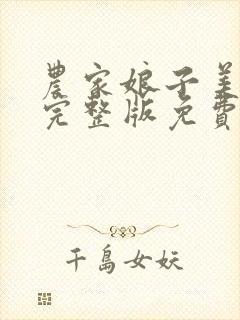 農家娘子美
完整版免費
千島女妖